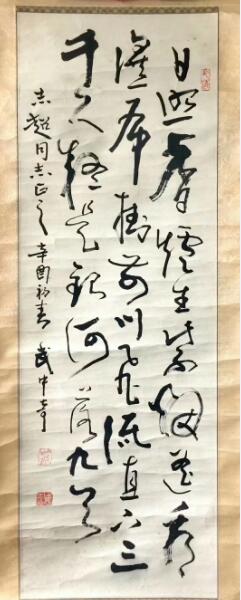 日照香爐生紫烟遙看
瀑布掛前川飛流直下三
千尺疑是銀河落九天
志超同志正之 辛酉初春 武中奇